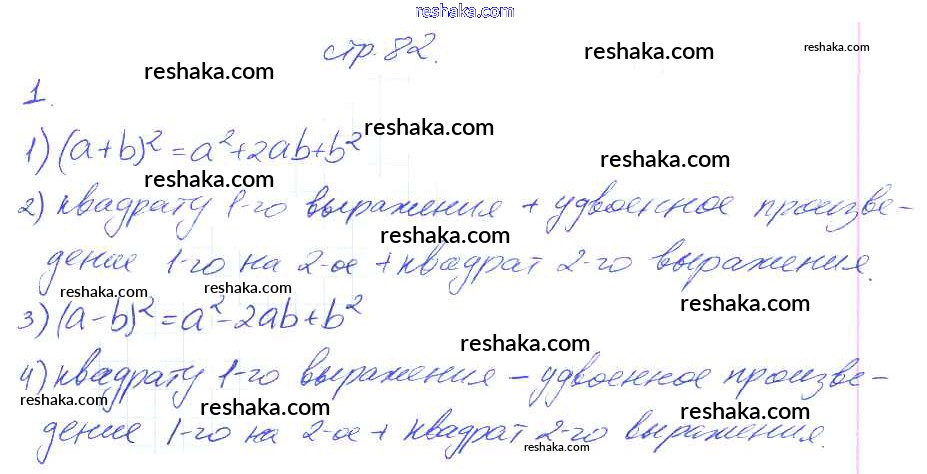 reshaka.com
стр. 82.
reshaka.com
reshaka.com
reshaka.com
1.
reshaka.com
1) (a+b)² = a²+2ab+b²
reshaka.com
reshaka.com
2) квадрату 1-го выражения + удвоенное произве-
reshaka.com
дение 1-го на 2-ое + квадрат 2-го выражения.
reshaka.com
reshaka.com
reshaka.com
3) (a-b)² = a²-2ab+b²
reshaka.com
4) квадрату 1-го выражения - удвоенное произве-
reshaka.com
reshaka.com
reshaka.com
дение 1-го на 2-ое + квадрат 2-го выражения.
reshaka.com